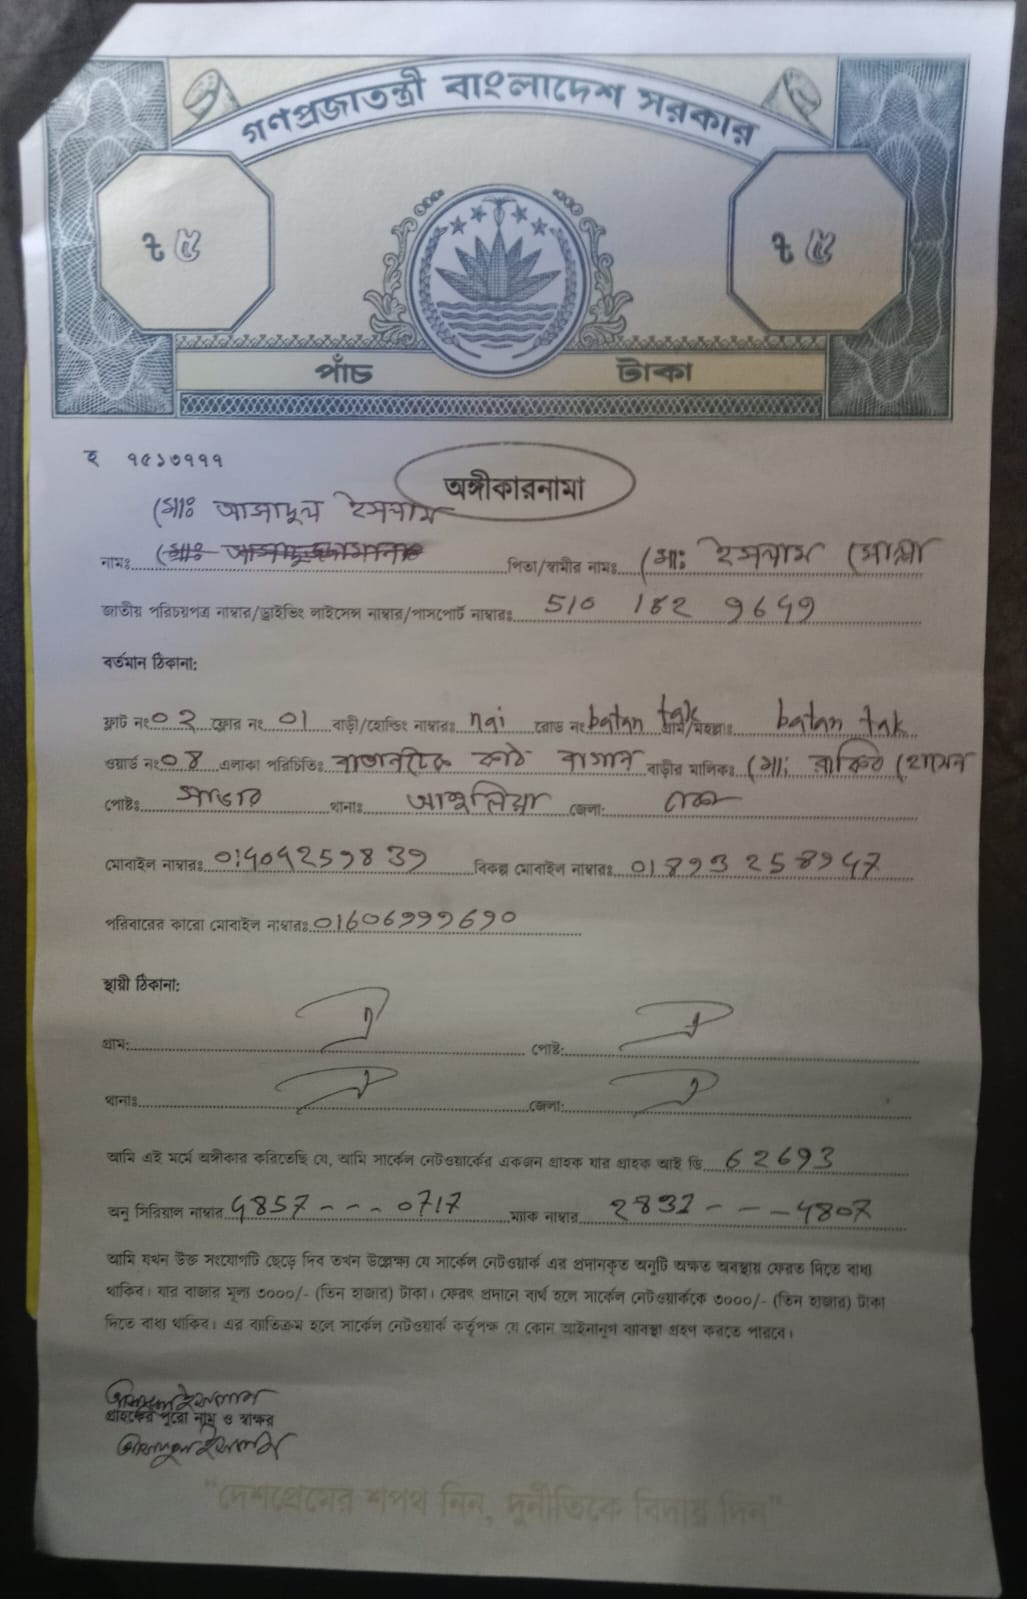 গণপ্রজাতন্ত্রী বাংলাদেশ সরকার
৳ ৫ ৳ ৫
পাঁচ টাকা
হ ৭৫১৩৭৭৭
অঙ্গীকারনামা
মোঃ আসাদুল ইসলাম
নামঃ পিতা/স্বামীর নামঃ মোঃ ইসলাম মোল্লা
জাতীয় পরিচয়পত্র নাম্বার/ড্রাইভিং লাইসেন্স নাম্বার/পাসপোর্ট নাম্বারঃ 510 182 9649
বর্তমান ঠিকানা:
ফ্লাট নং ০২ ফ্লোর নং ০1 বাড়ী/হোল্ডিং নাম্বারঃ nai রোড নং batan tak গ্রাম/মহল্লাঃ batan tak
ওয়ার্ড নং ০8 এলাকা পরিচিতিঃ কাঠ বাগান বাড়ীর মালিকঃ মোঃ রাকিব হোসেন
পোষ্টঃ সাভার থানাঃ আশুলিয়া জেলা: ঢাকা
মোবাইল নাম্বারঃ বিকল্প মোবাইল নাম্বারঃ
পরিবারের কারো মোবাইল নাম্বারঃ 01606999690
স্থায়ী ঠিকানা:
গ্রাম: পোষ্ট:
থানাঃ জেলা:
আমি এই মর্মে অঙ্গীকার করিতেছি যে, আমি সার্কেল নেটওয়ার্কের একজন গ্রাহক যার গ্রাহক আই ডি 62693
অনু সিরিয়াল নাম্বার 4857 --- 0717 ম্যাক নাম্বার --- 4807
আমি যখন উক্ত সংযোগটি ছেড়ে দিব তখন উল্লেক্ষ্য যে সার্কেল নেটওয়ার্ক এর প্রদানকৃত অনুটি অক্ষত অবস্থায় ফেরত দিতে বাধ্য
থাকিব। যার বাজার মূল্য ৩০০০/- (তিন হাজার) টাকা। ফেরৎ প্রদানে ব্যর্থ হলে সার্কেল নেটওয়ার্ককে ৩০০০/- (তিন হাজার) টাকা
দিতে বাধ্য থাকিব। এর ব্যাতিক্রম হলে সার্কেল নেটওয়ার্ক কর্তৃপক্ষ যে কোন আইনানুগ ব্যাবস্থা গ্রহণ করতে পারবে।
আসাদুল ইসলাম
গ্রাহকের পুরো নাম ও স্বাক্ষর
আসাদুল ইসলাম
"দেশপ্রেমের শপথ নিন, দুর্নীতিকে বিদায় দিন"